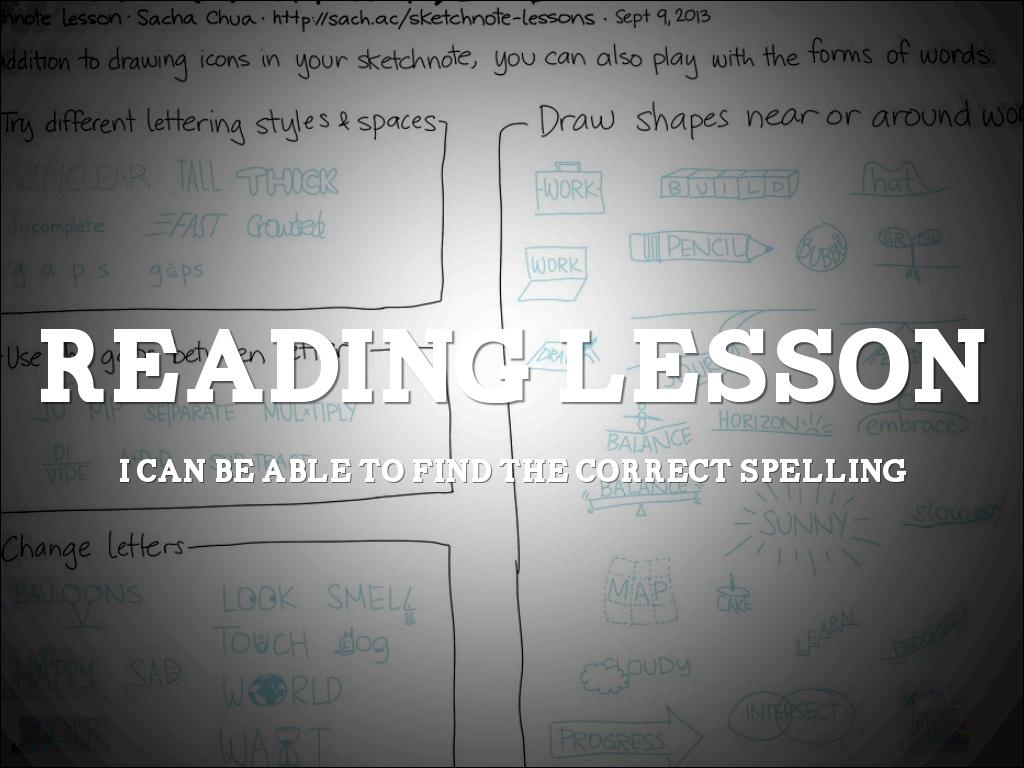 Lesson · Sacha Chua · http://sach.ac/sketchnote-lessons · Sept 9, 2013
addition to drawing icons in your sketchnote, you can also play with the forms of words.
Try different lettering styles & spaces
UNCLEAR TALL THICK
incomplete FAST Crowded
gaps gaps
Use the gaps between letters
JU MP SE|PARATE MUL×TIPLY
DI
VIDE
Change letters
BALLOONS LOOK SMELL
TOUCH dog
HAPPY SAD
WORLD
WAIT
Draw shapes near or around
WORK BUILD hat
PENCIL BUBBLE GROW
WORK
READING LESSON
BALANCE HORIZON embrace
I CAN BE ABLE TO FIND THE CORRECT SPELLING
BALANCE
SUNNY slow
MAP CAKE
LEARN PROGRESS
CLOUDY
INTERSECT
PROGRESS